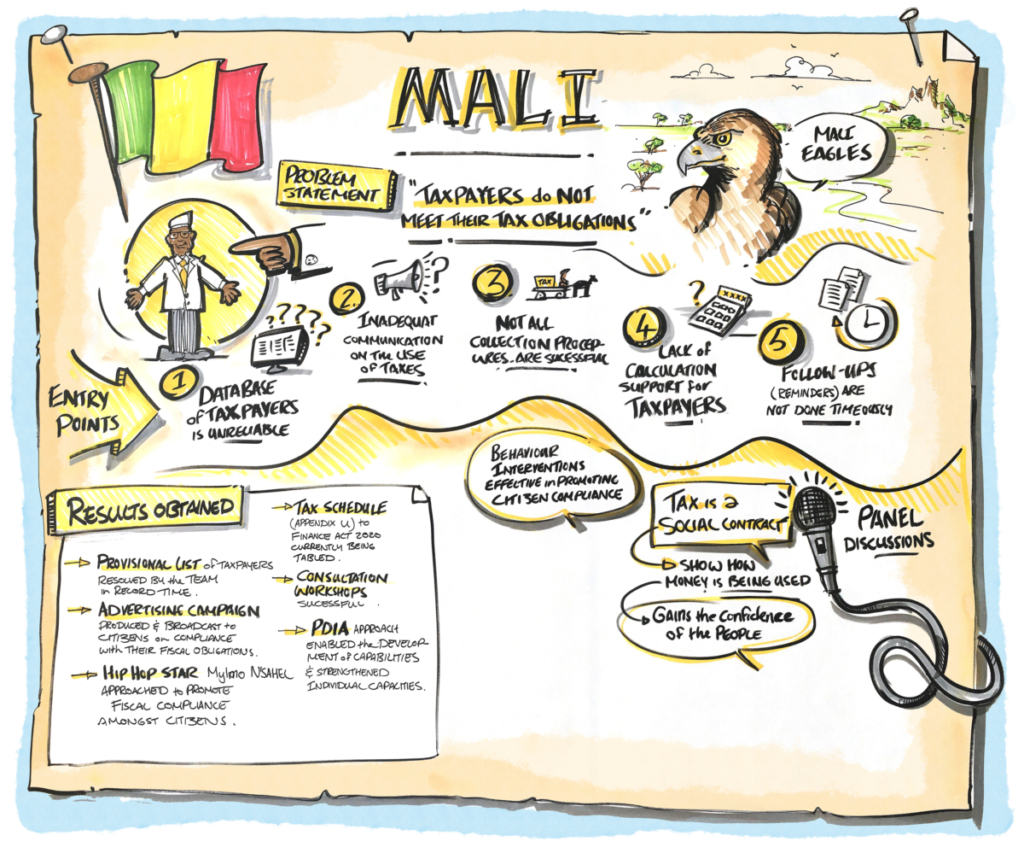 MALI
MALI
EAGLES
PROBLEM
STATEMENT
"TAXPAYERS do NOT
MEET THEIR TAX OBLIGATIONS"
ENTRY
POINTS
1
DATABASE
of TAXPAYERS
IS UNRELIABLE
????
2.
?
INADEQUAT
COMMUNICATION
ON THE USE
OF TAXES
3
TAX
NOT ALL
COLLECTION PROCEP-
URES. ARE SUCESSFUL
4
?
XXXX
LACK of
CALCULATION
SUPPORT for
TAXPAYERS
5
FOLLOW-UPS
(REMINDERS) ARE
NOT DONE TIMEOUSLY
RESULTS OBTAINED
PROVISIONAL LIST of TAXPAYERS
RESCUED BY the TEAM
IN RECORD TIME.
ADVERTISING CAMPAIGN
PRODUCED & BROADCAST to
CITIZENS on COMPLIANCE
with THEIR FISCAL OBLIGATIONS.
HIP HOP STAR Mylmo NSAHEL
APPROACHED to PROMOTE
FISCAL COMPLIANCE
AMONGST CITIZENS.
TAX SCHEDULE
(APPENDIX U) to
FINANCE ACT 2020
CURRENTLY BEING
TABLED.
CONSULTATION
WORKSHOPS
SUCESSFUL.
PDIA APPROACH
ENABLED the DEVELOP
MENT of CAPABILITIES
& STRENGTHENED
INDIVIDUAL CAPACITIES.
BEHAVIOUR
INTERVENTIONS
EFFECTIVE in PROMOTING
CITIZEN COMPLIANCE
TAX is a
SOCIAL CONTRACT
SHOW HOW
MONEY is BEING USED
Gains the Confidence
of the PEOPLE
PANEL
DISCUSSIONS